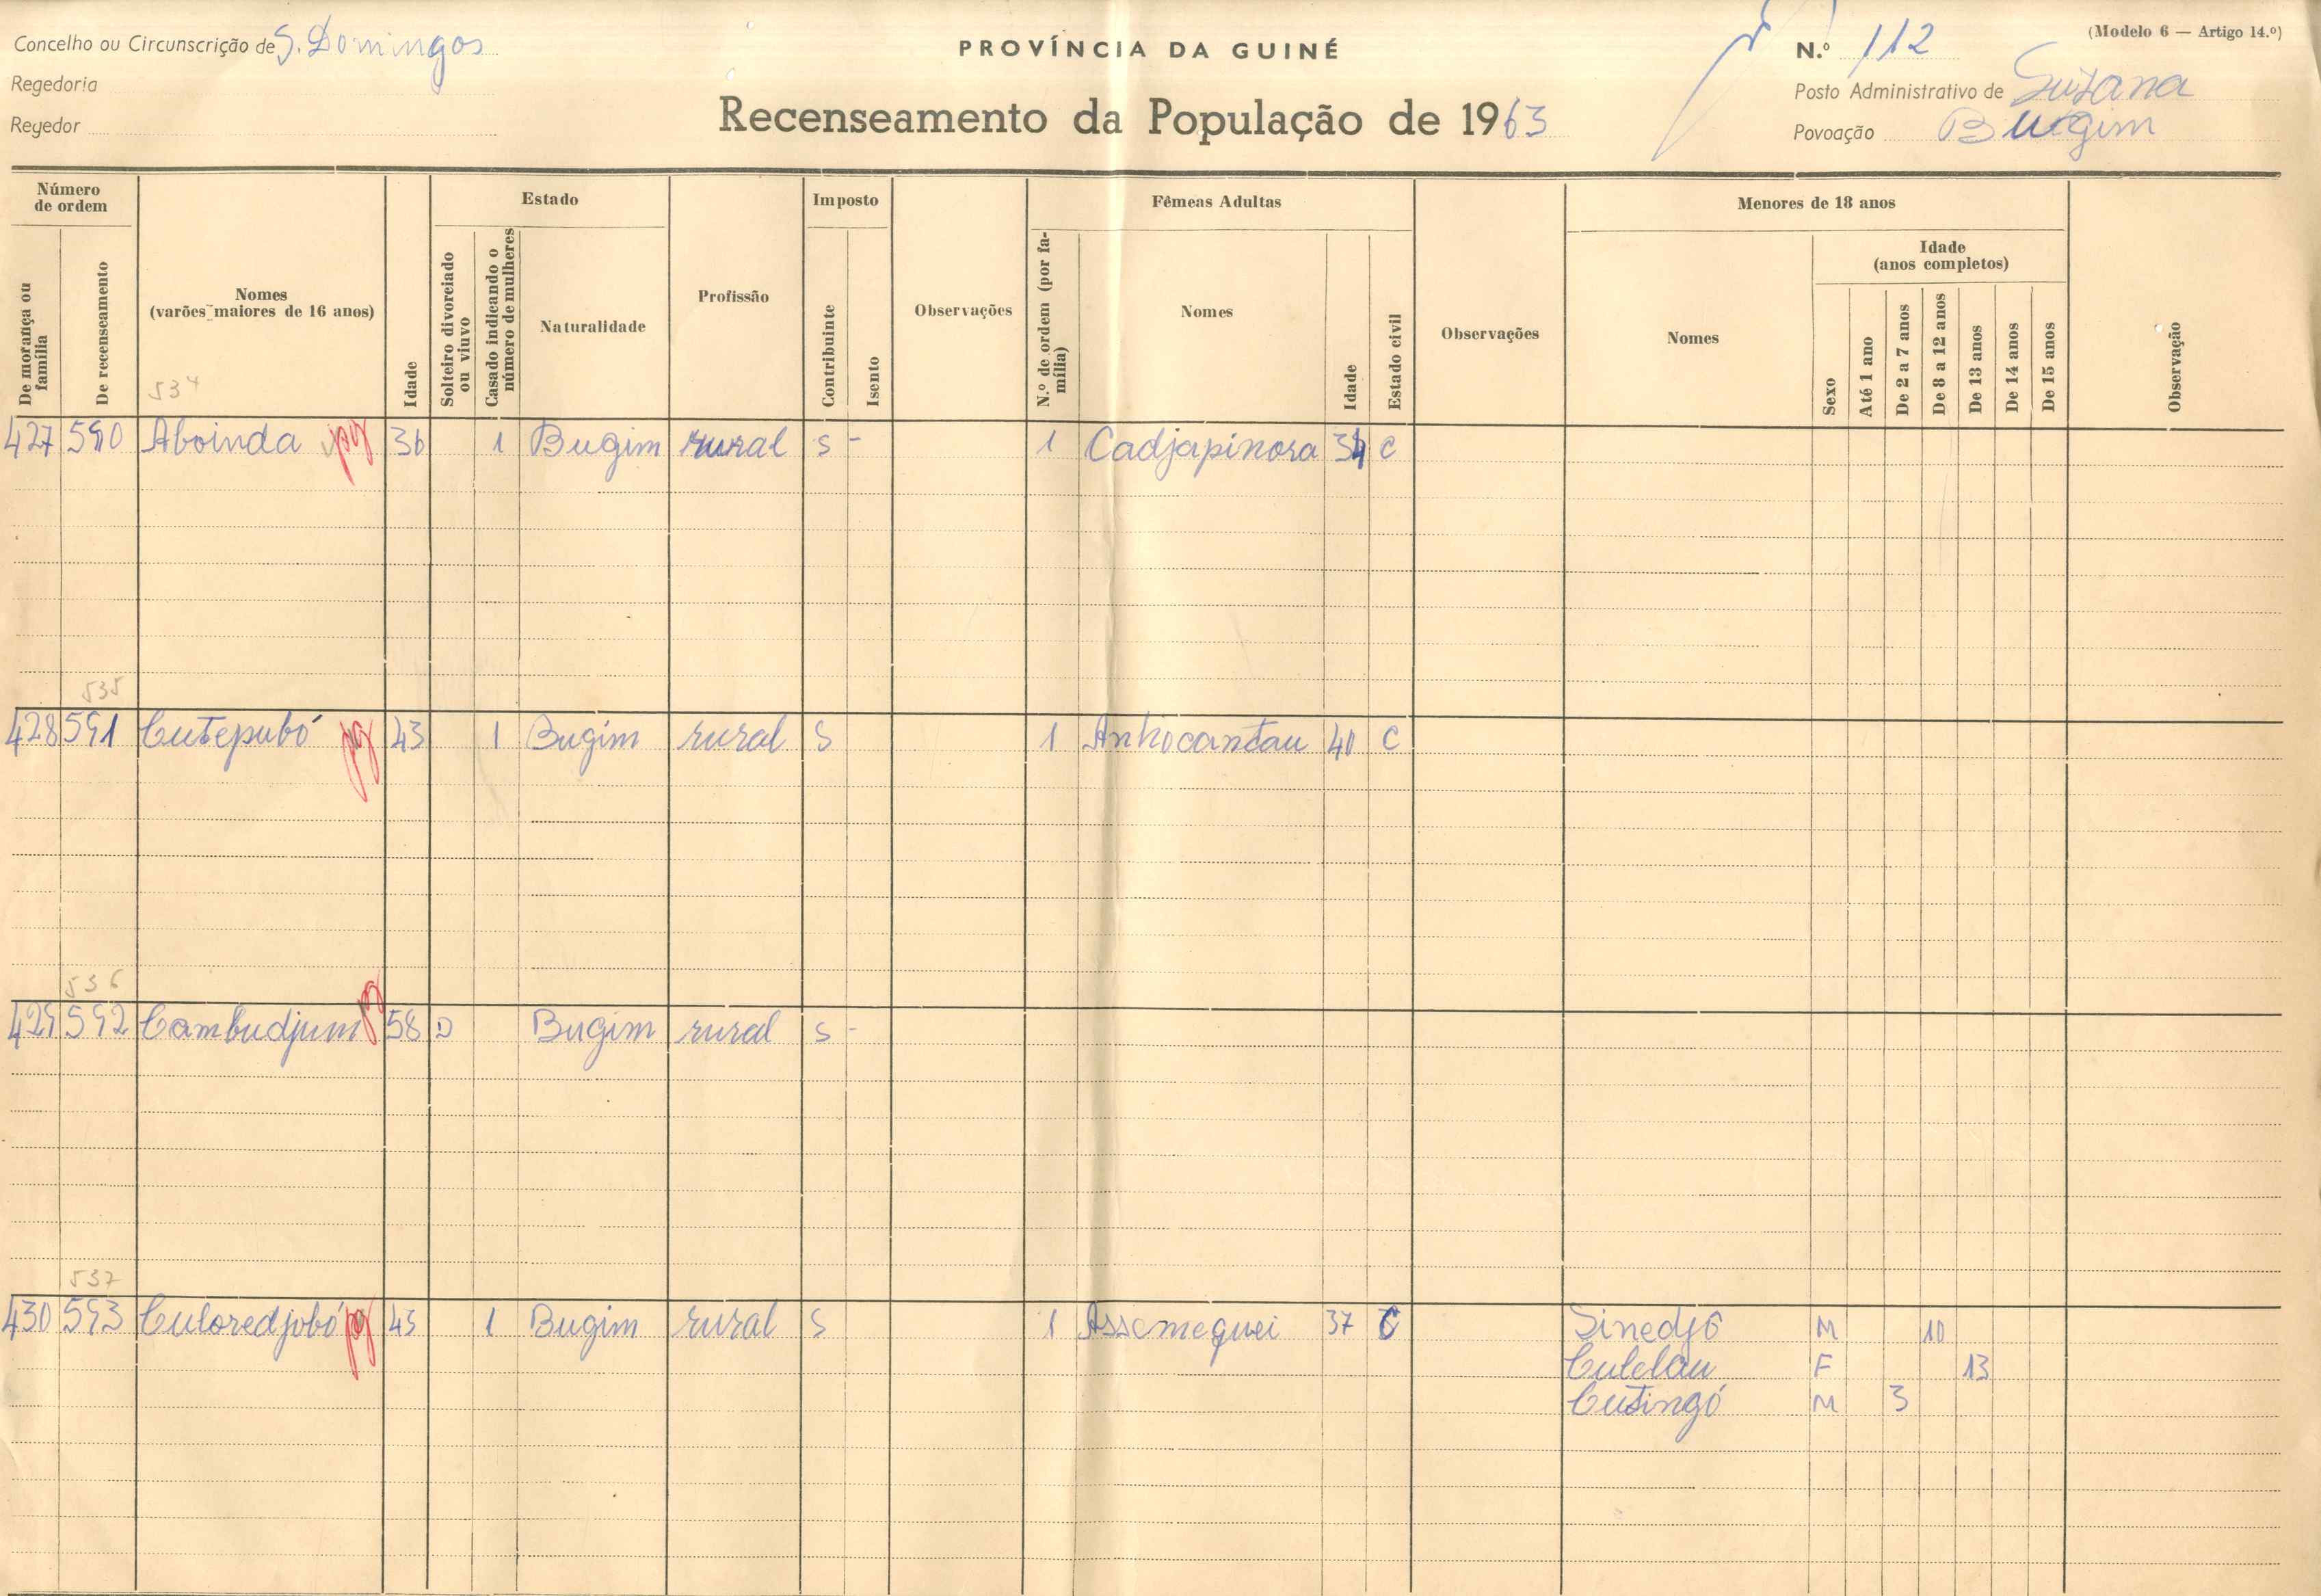 Concelho ou Circunscrição de S. Domingos
Regedoria
Regedor
PROVÍNCIA DA GUINÉ
Recenseamento da População de 1963
(Modelo 6 — Artigo 14.º)
N.º 112
Posto Administrativo de Suzana
Povoação Bugim
Número de ordem
De morança ou família
De recenseamento
Nomes
(varões maiores de 16 anos)
Idade
Estado
Solteiro divorciado ou viuvo
Casado indicando o número de mulheres
Naturalidade
Profissão
Imposto
Contribuinte
Isento
Observações
Fêmeas Adultas
N.º de ordem (por família)
Nomes
Idade
Estado civil
Observações
Menores de 18 anos
Nomes
Sexo
Idade
(anos completos)
Até 1 ano
De 2 a 7 anos
De 8 a 12 anos
De 13 anos
De 14 anos
De 15 anos
Observação
534
427 590 Aboinda pg 36 1 Bugim rural s - 1 Cadjapinora 34 C
535
428 591 Cutepubó pg 43 1 Bugim rural S 1 Anhocantau 40 C
536
429 592 Cambudjum pg 58 D Bugim rural S -
537
430 593 Culoredjobó pg 45 1 Bugim rural S 1 Assemequei 37 C Sinedjó M 10
Culelau F 13
Cutingó M 3